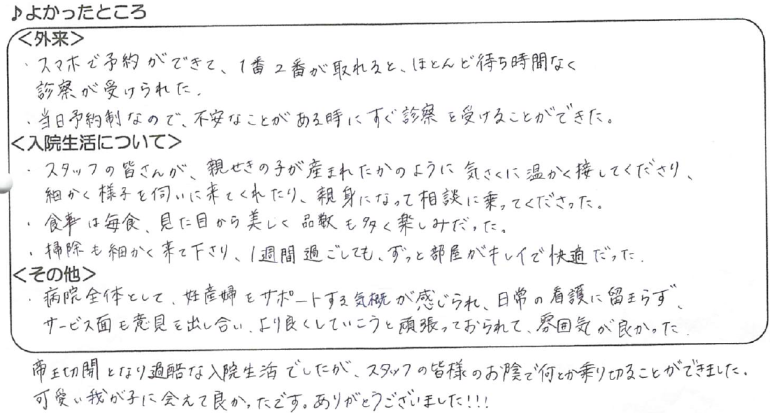 ♪よかったところ
＜外来＞
・スマホで予約ができて、1番2番が取れると、ほとんど待ち時間なく
診察が受けられた.
・当日予約制なので、不安なことがある時にすぐ診察を受けることができた。
＜入院生活について＞
・スタッフの皆さんが、親せきの子が産まれたかのように気さくに温かく接してくださり、
細かく様子を伺いに来てくれたり、親身になって相談に乗ってくださった。
・食事は毎食、見た目から美しく品数も多く楽しみだった。
・掃除も細かく来て下さり、1週間過ごしても、ずっと部屋がキレイで快適だった.
＜その他＞
・病院全体として、妊産婦をサポートする気概が感じられ、日常の看護に留まらず、
サービス面も意見を出し合い、より良くしていこうと頑張っておられて、雰囲気が良かった.
帝王切開となり過酷な入院生活でしたが、スタッフの皆様のお陰で何とか乗り切ることができました.
可愛い我が子に会えて良かったです。ありがとうございました!!!